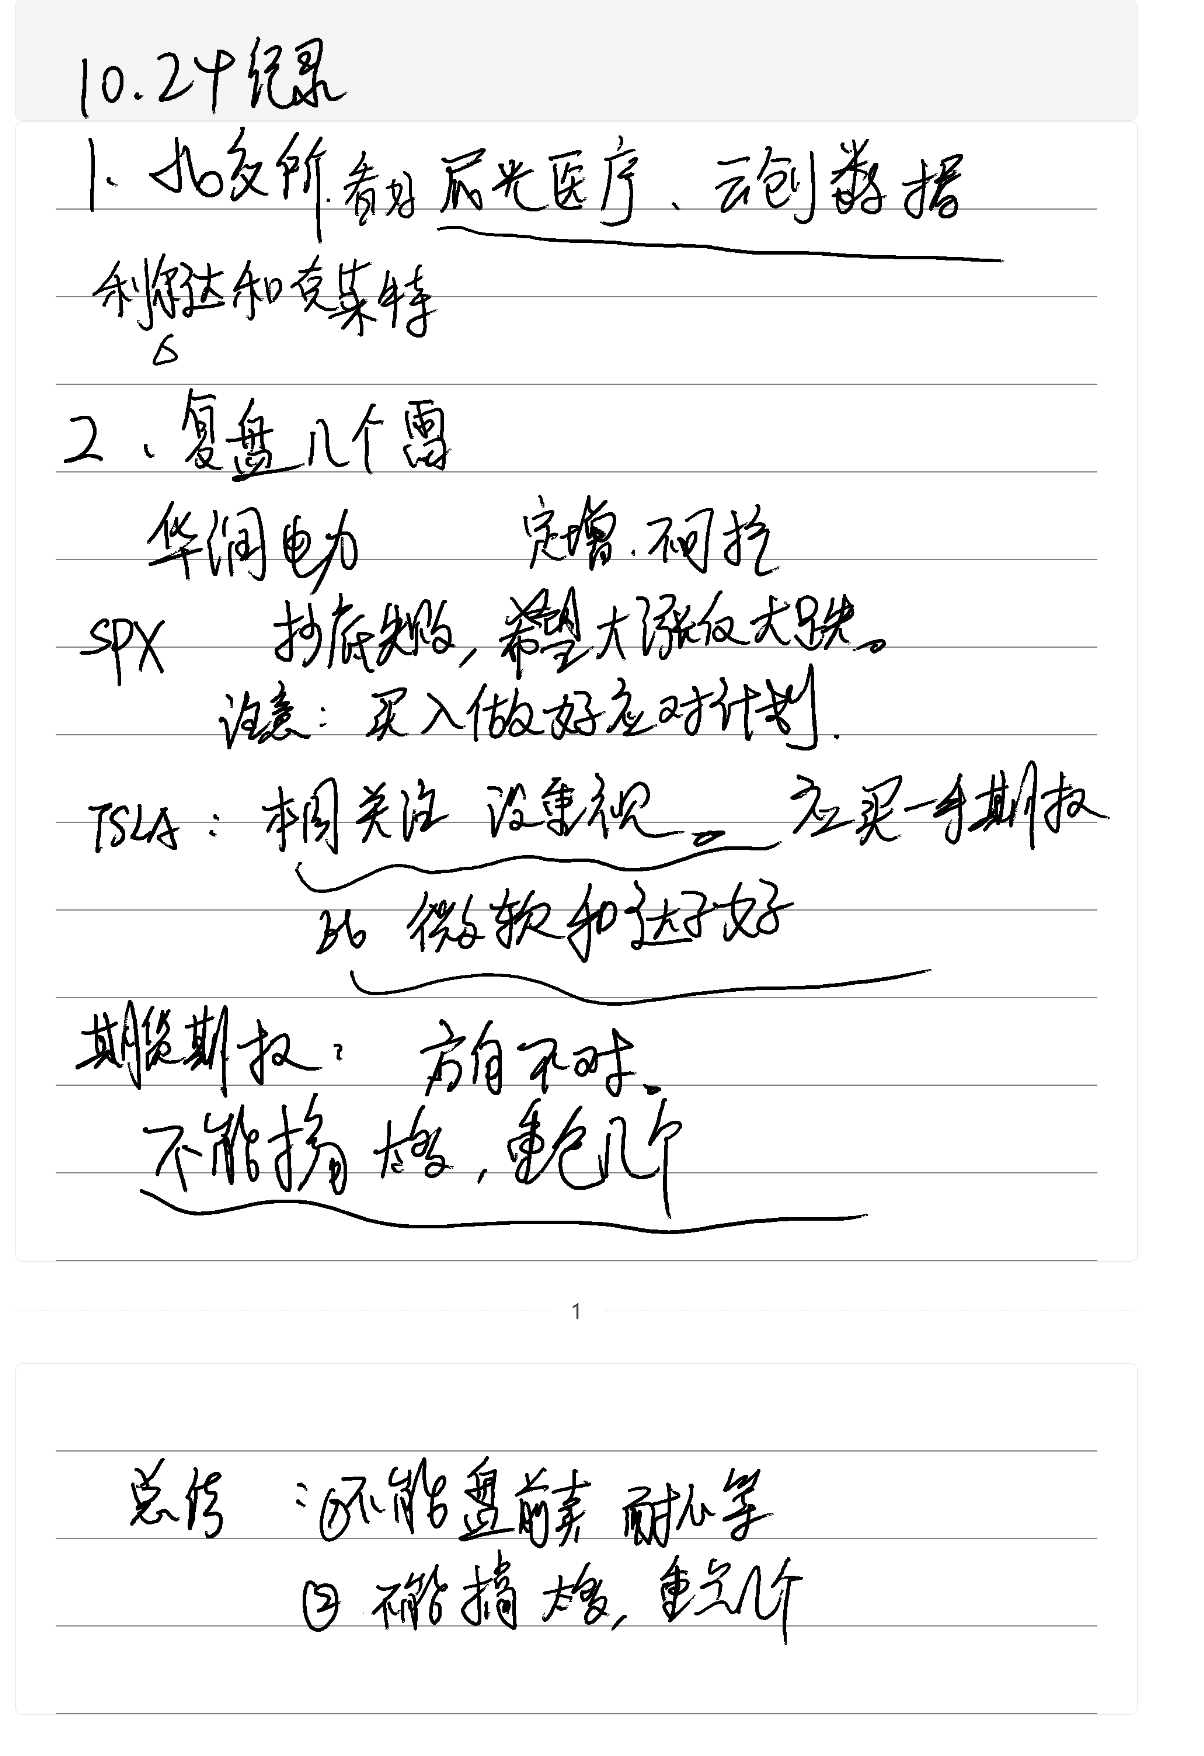 10.24纪录
1、北交所.看好辰光医疗、云创数据
利尔达和克莱特
2、复盘几个雷
华润电力 定增.不可抗
SPX 抄底失败,希望大涨仅大跌。
注意:买入做好应对计划.
TSLA: 相关注 没重视。 应买一手期权
比 微软和达子好
期货期权: 方向不对.
不能搞太多,重仓几个
1
总结 :①不能盘前卖 耐心等
② 不能搞太多,重点几个